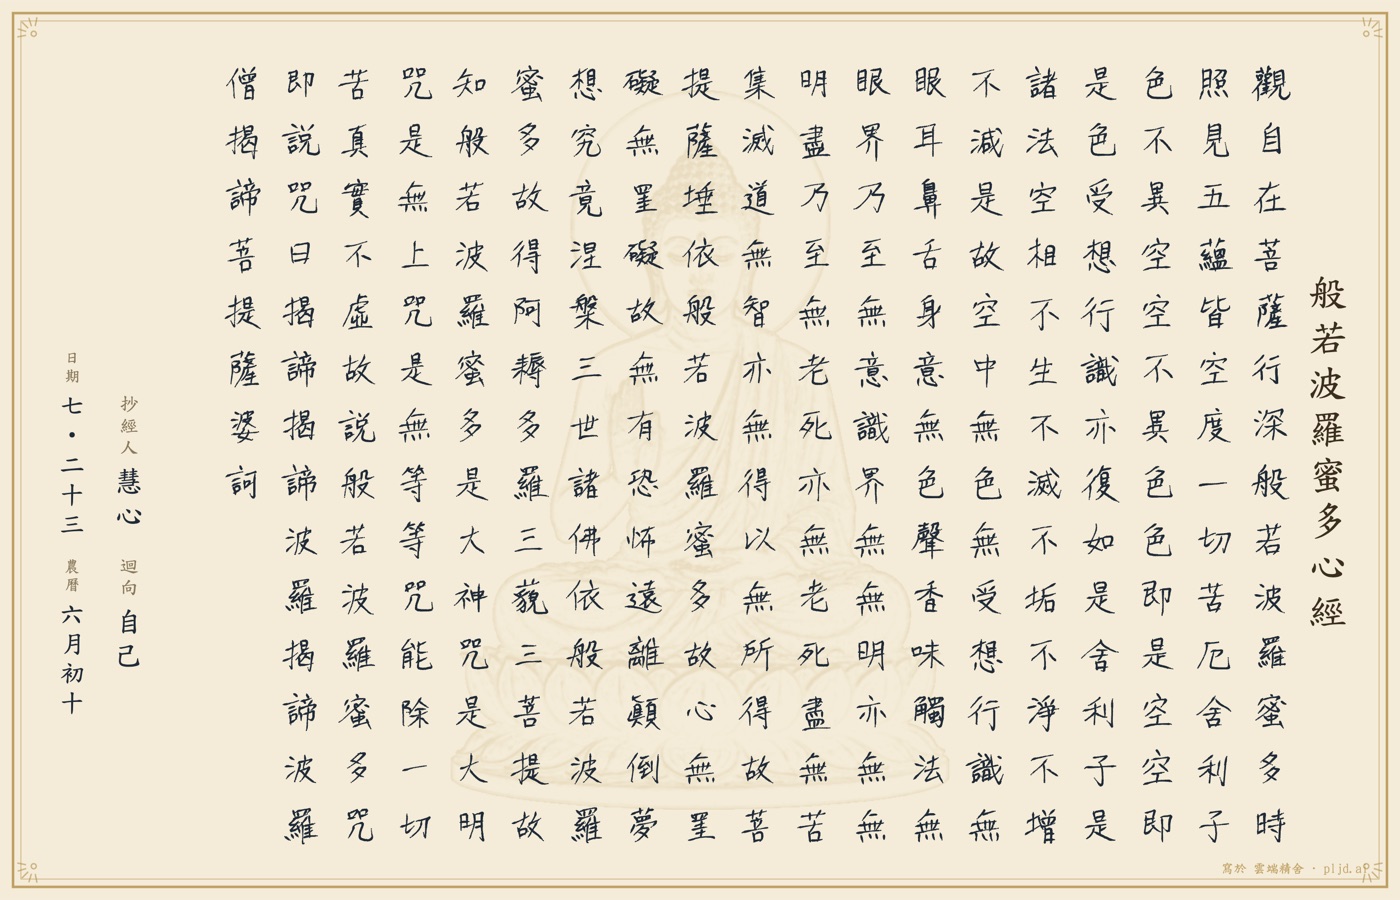 般若波羅蜜多心經
觀自在菩薩行深般若波羅蜜多時
照見五蘊皆空度一切苦厄舍利子
色不異空空不異色色即是空空即
是色受想行識亦復如是舍利子是
諸法空相不生不滅不垢不淨不增
不減是故空中無色無受想行識無
眼耳鼻舌身意無色聲香味觸法無
眼界乃至無意識界無無明亦無無
明盡乃至無老死亦無老死盡無苦
集滅道無智亦無得以無所得故菩
提薩埵依般若波羅蜜多故心無罣
礙無罣礙故無有恐怖遠離顛倒夢
想究竟涅槃三世諸佛依般若波羅
蜜多故得阿耨多羅三藐三菩提故
知般若波羅蜜多是大神咒是大明
咒是無上咒是無等等咒能除一切
苦真實不虛故説般若波羅蜜多咒
即説咒曰揭諦揭諦波羅揭諦波羅
僧揭諦菩提薩婆訶
抄經人 慧心 迴向 自己
日期 七·二十三 農曆 六月初十
寫於 雲端精舍 · pljd.a